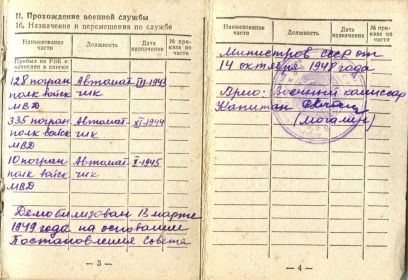 II. Прохождение военной службы
16. Назначения и перемещения по службе
Наименование части
Должность
Дата назначения
№ приказа по части
Прибыл из РВК и зачислен в списки
128 погран Автомат III-1943
полк войск чик
МВД
335 погран Автомат XI-1944
полк войск чик
МВД
10 погран Автомат X-1945
полк войск чик
МВД
Демобилизован 13 марта
1949 года на основании
Постановления Совета
— 3 —
Наименование части
Должность
Дата назначения
№ приказа по части
Министров СССР от
14 октября 1948 года
Врио: Военный комиссар
Капитан
(Могалин)
— 4 —